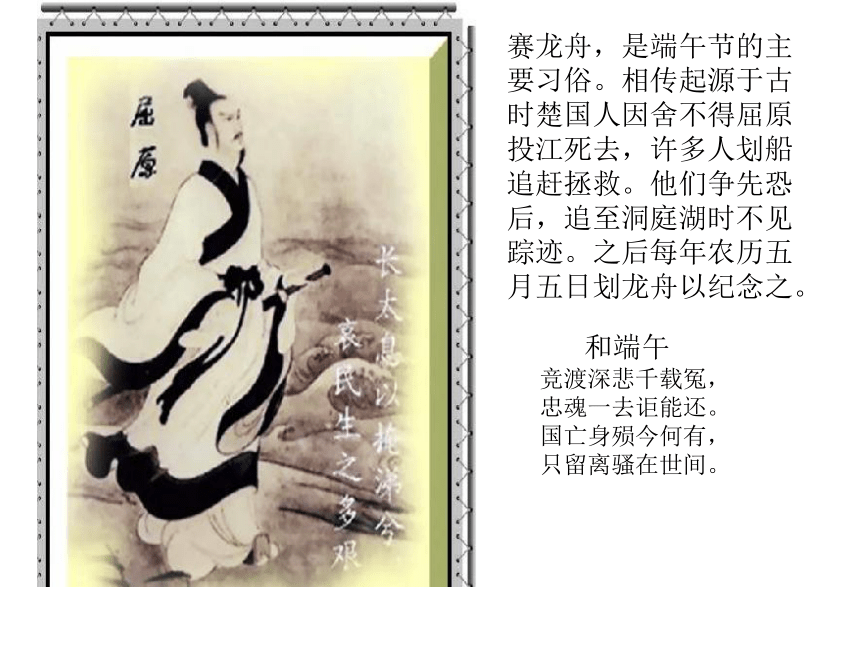 屈原
长太息以掩涕兮
哀民生之多艰
赛龙舟，是端午节的主
要习俗。相传起源于古
时楚国人因舍不得屈原
投江死去，许多人划船
追赶拯救。他们争先恐
后，追至洞庭湖时不见
踪迹。之后每年农历五
月五日划龙舟以纪念之。
和端午
竞渡深悲千载冤，
忠魂一去讵能还。
国亡身殒今何有，
只留离骚在世间。